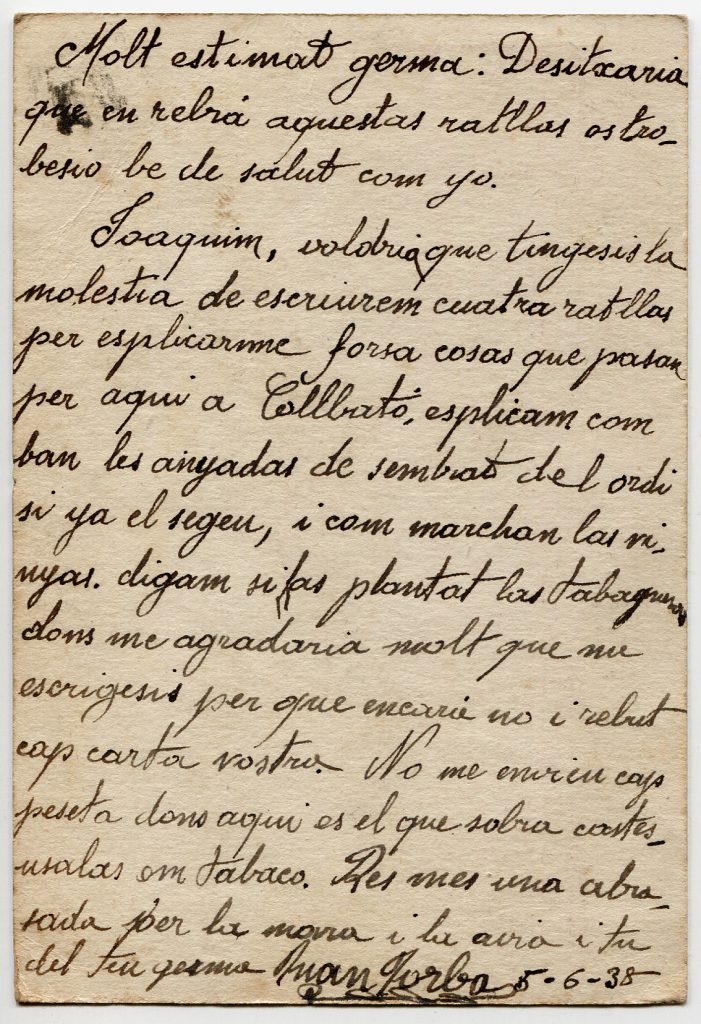 Molt estimat germa: Desitxaria
que en rebrá aquestas ratllas os tro-
besio be de salut com yo.
Joaquim, voldria que tingesis la
molestia de escriurem cuatra ratllas
per esplicarme forsa cosas que pasan
per aqui a Collbató, esplicam com
ban les anyadas de sembrat del ordi
si ya el segeu, i com marchan las vi-
nyas. digam si as plantat las tabaqueras
dons me agradaria molt que me
escrigesis per que encara no i rebut
cap carta vostra. No me envieu cap
peseta dons aqui es el que sobra
usalas em tabaco. Res mes una abra-
sada per la mara i la avia i tu
del teu germa Juan Jorba 5-6-38